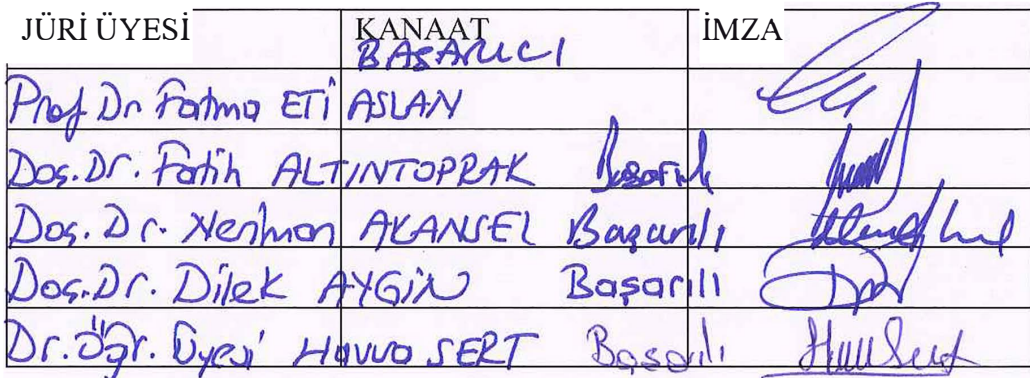 JÜRİ ÜYESİ KANAAT İMZA
BAŞARILI
Prof Dr Fatma ETİ ASLAN
Doç.Dr. Fatih ALTINTOPRAK Başarılı
Doç. Dr. Neriman AKANSEL Başarılı
Doç.Dr. Dilek AYGİN Başarılı
Dr. Öğr. Üyesi Havva SERT Başarılı